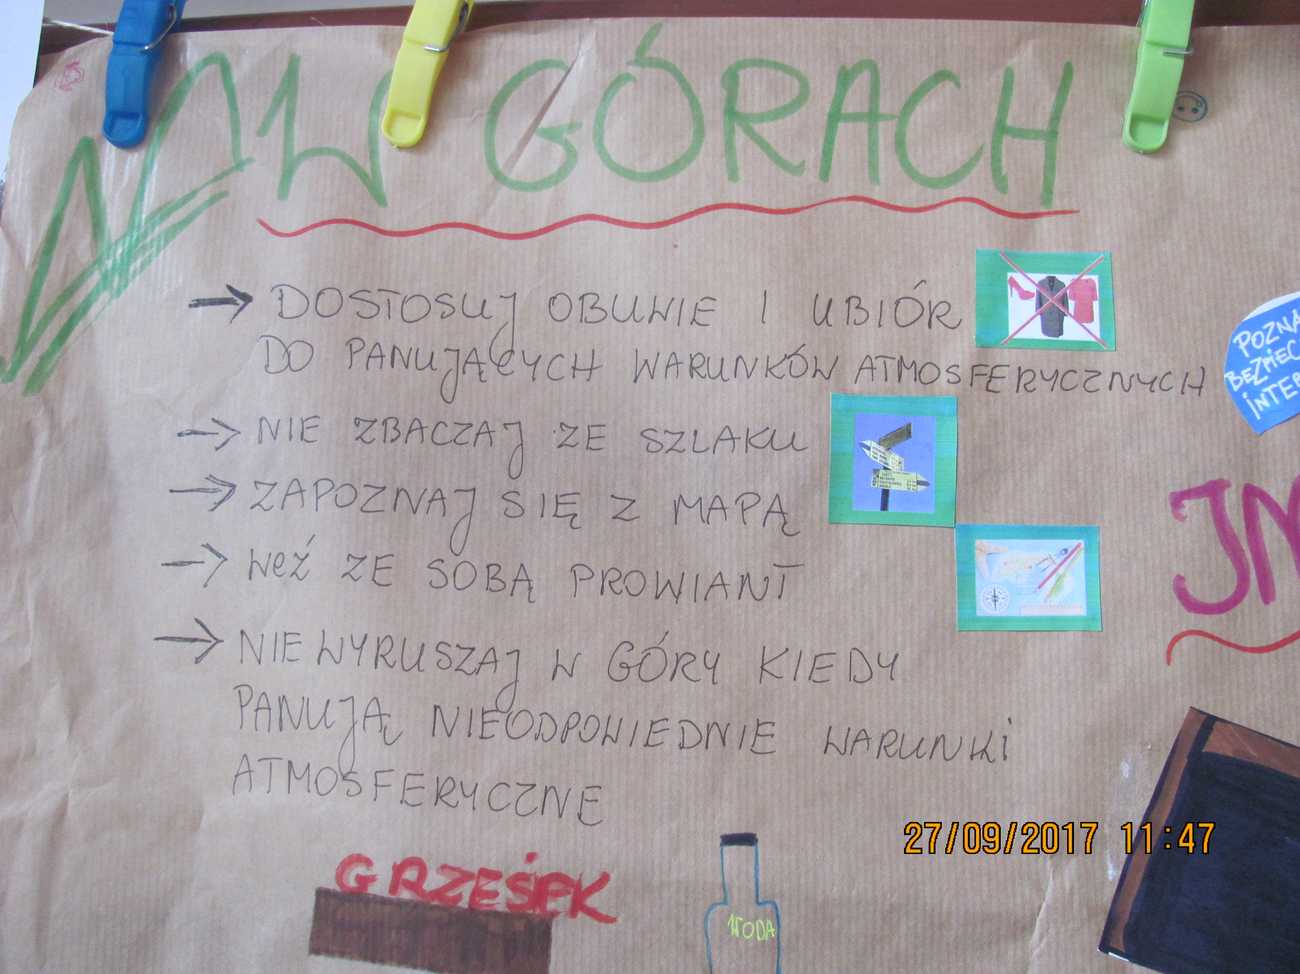 W GÓRACH
→ DOSTOSUJ OBUWIE I UBIÓR
DO PANUJĄCYCH WARUNKÓW ATMOSFERYCZNYCH
→ NIE ZBACZAJ ZE SZLAKU
→ ZAPOZNAJ SIĘ Z MAPĄ
→ Weź ZE SOBĄ PROWIANT
→ NIE WYRUSZAJ W GÓRY KIEDY
PANUJĄ NIEODPOWIEDNIE WARUNKI
ATMOSFERYCZNE
GRZEŚEK
WODA
27/09/2017 11:47